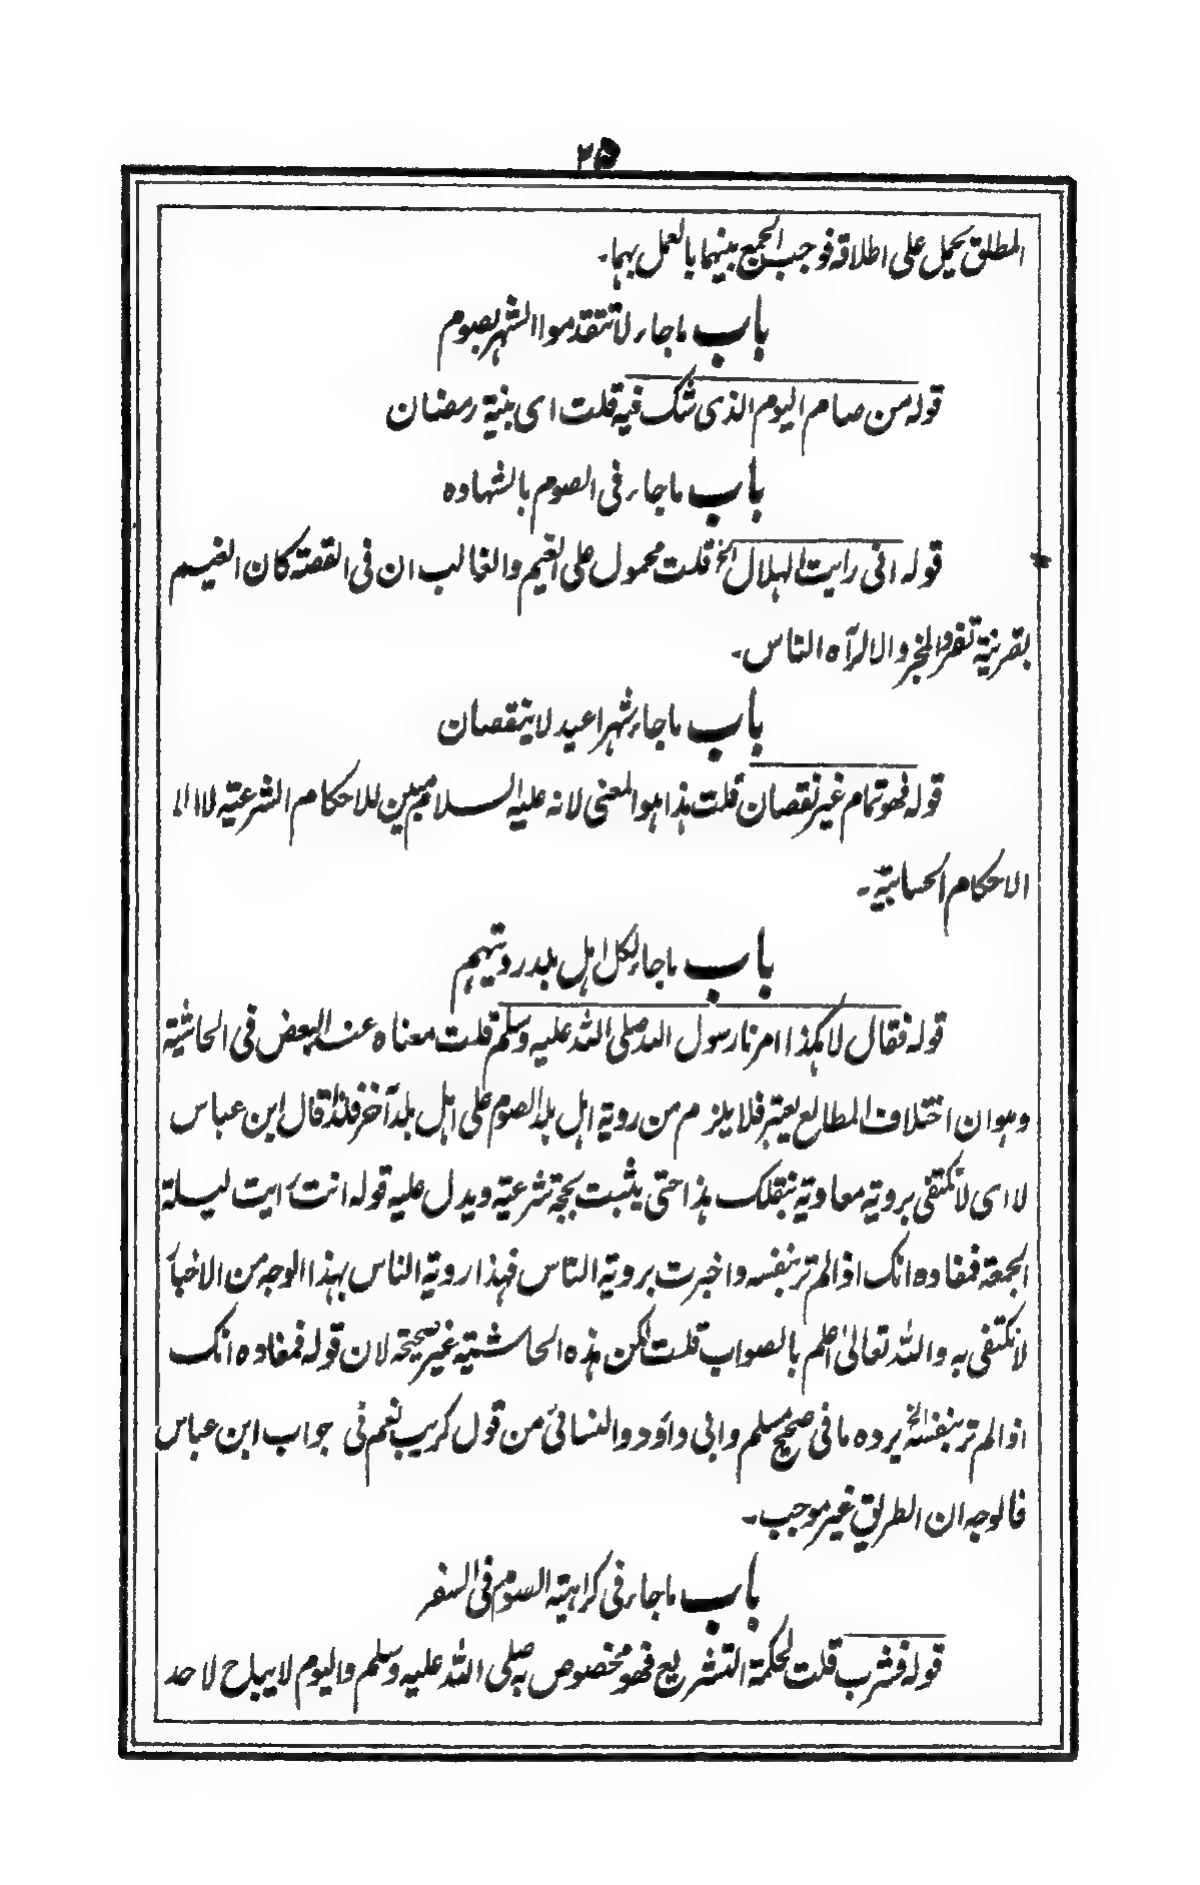 ٢٥
المطلق يحمل على اطلاقه فوجب الجمع بينهما بالعمل بهما۔
باب ما جاء لا تتقدموا الشهر بصوم
قوله من صام اليوم الذى شك فيه قلت اى بنية رمضان
باب ما جاء فى الصوم بالشهاده
قوله انى رايت الهلال الخ قلت محمول على الغيم والغالب ان فى القصة كان الغيم
بقرينة تفرد المخبر والا لرآه الناس۔
باب ما جاء شهرا عيد لا ينقصان
قوله فهو تمام غير نقصان قلت هذا هو المعنى لانه عليه السلام مبين للاحكام الشرعية لا الى
الاحكام الحسابية۔
باب ما جاء لكل اهل بلد رويتهم
قوله فقال لا هكذا امرنا رسول الله صلى الله عليه وسلم قلت معناه عند البعض فى الحاشية
وهو ان اختلاف المطالع يعتبر فلا يلزم من روية اهل بلد الصوم على اهل بلد آخر فلذا قال ابن عباس
لا اى لا نكتفى بروية معاوية بنقلك هذا حتى يثبت بحجة شرعية ويدل عليه قوله انت رايت ليلة
الجمعة فمفاده انك اذا لم تر بنفسه واخبرت بروية الناس فهذا روية الناس بهذا الوجه من الاخبار
لا نكتفى به والله تعالىٰ اعلم بالصواب قلت لكن هذه الحاشية غير صحيحة لان قوله فمفاده انك
اذا لم تر بنفسه الخ يرده ما فى صحيح مسلم وابى داؤد والنسائى من قول كريب نعم فى جواب ابن عباس
فالوجه ان الطريق غير موجب۔
باب ما جاء فى كراهية الصوم فى السفر
قوله فشرب قلت لحكمة التشريع فهو مخصوص به صلى الله عليه وسلم واليوم لا يباح لاحد